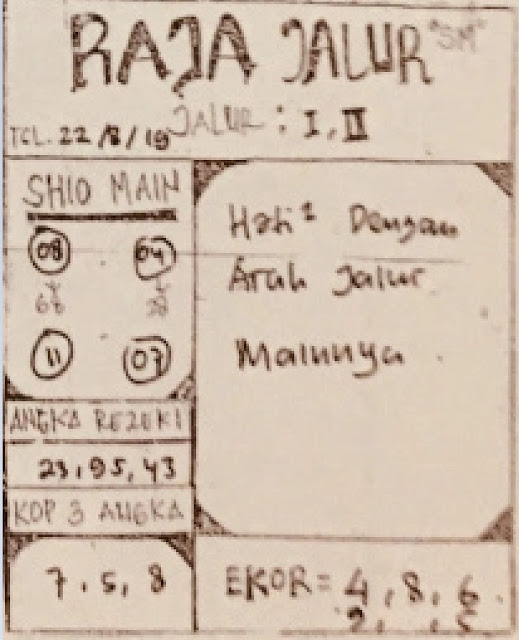 RAJA JALUR "SM"
JALUR : I, III
TGL. 22/8/19
SHIO MAIN
08 04
11 07
ANGKA REZEKI
23, 95, 43
KOP 3 ANGKA
7, 5, 8
Hati² Dengan
Arah Jalur
Mainnya .
EKOR = 4, 8, 6.
2, , 5